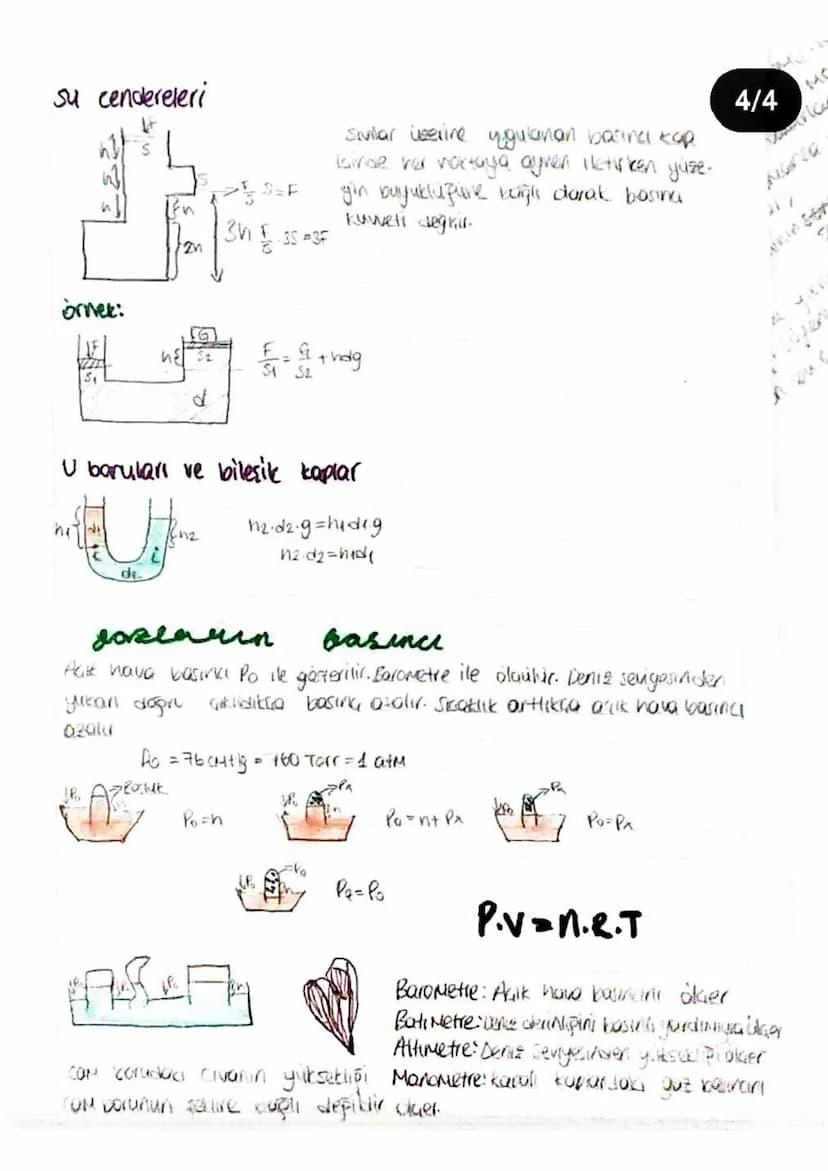 4/4
su cendereleri
sıvılar üzerine uygulanan basıncı kap
içinde her noktaya aynen iletirken yüze-
yin büyüklüğüne bağlı olarak basınç
kuvveti değişir.
F
S
h
h
h
S
F/S . S = F
h
2h
3h
F/S . 3S = 3F
örnek:
F
S1
h
G
S2
d
F/S1 = G/S2 + hdg
U boruları ve bileşik kaplar
h1
d1
h2
d2
h2.d2.g=h1d1g
h2.d2=h1d1
gazların basıncı
Açık hava basıncı Po ile gösterilir. Barometre ile ölçülür. Deniz seviyesinden
yukarı doğru çıkıldıkça basınç azalır. Sıcaklık arttıkça açık hava basıncı
azalır
= 76 cmHg = 760 Torr = 1 atm
Po
Boşluk
Po=h
Po
Px
Po=h+Px
Po
Px
Po=Px
Po
P2=Po
P.V=n.R.T
Barometre: Açık hava basıncını ölçer
Batimetre: Deniz derinliğini basınç yardımıyla ölçer
Altimetre: Deniz seviyesinden yüksekliği ölçer
Manometre: kapalı kaplardaki gaz basıncını
ölçer.
cam borudaki civanın yüksekliği
cam borunun şekline bağlı değildir